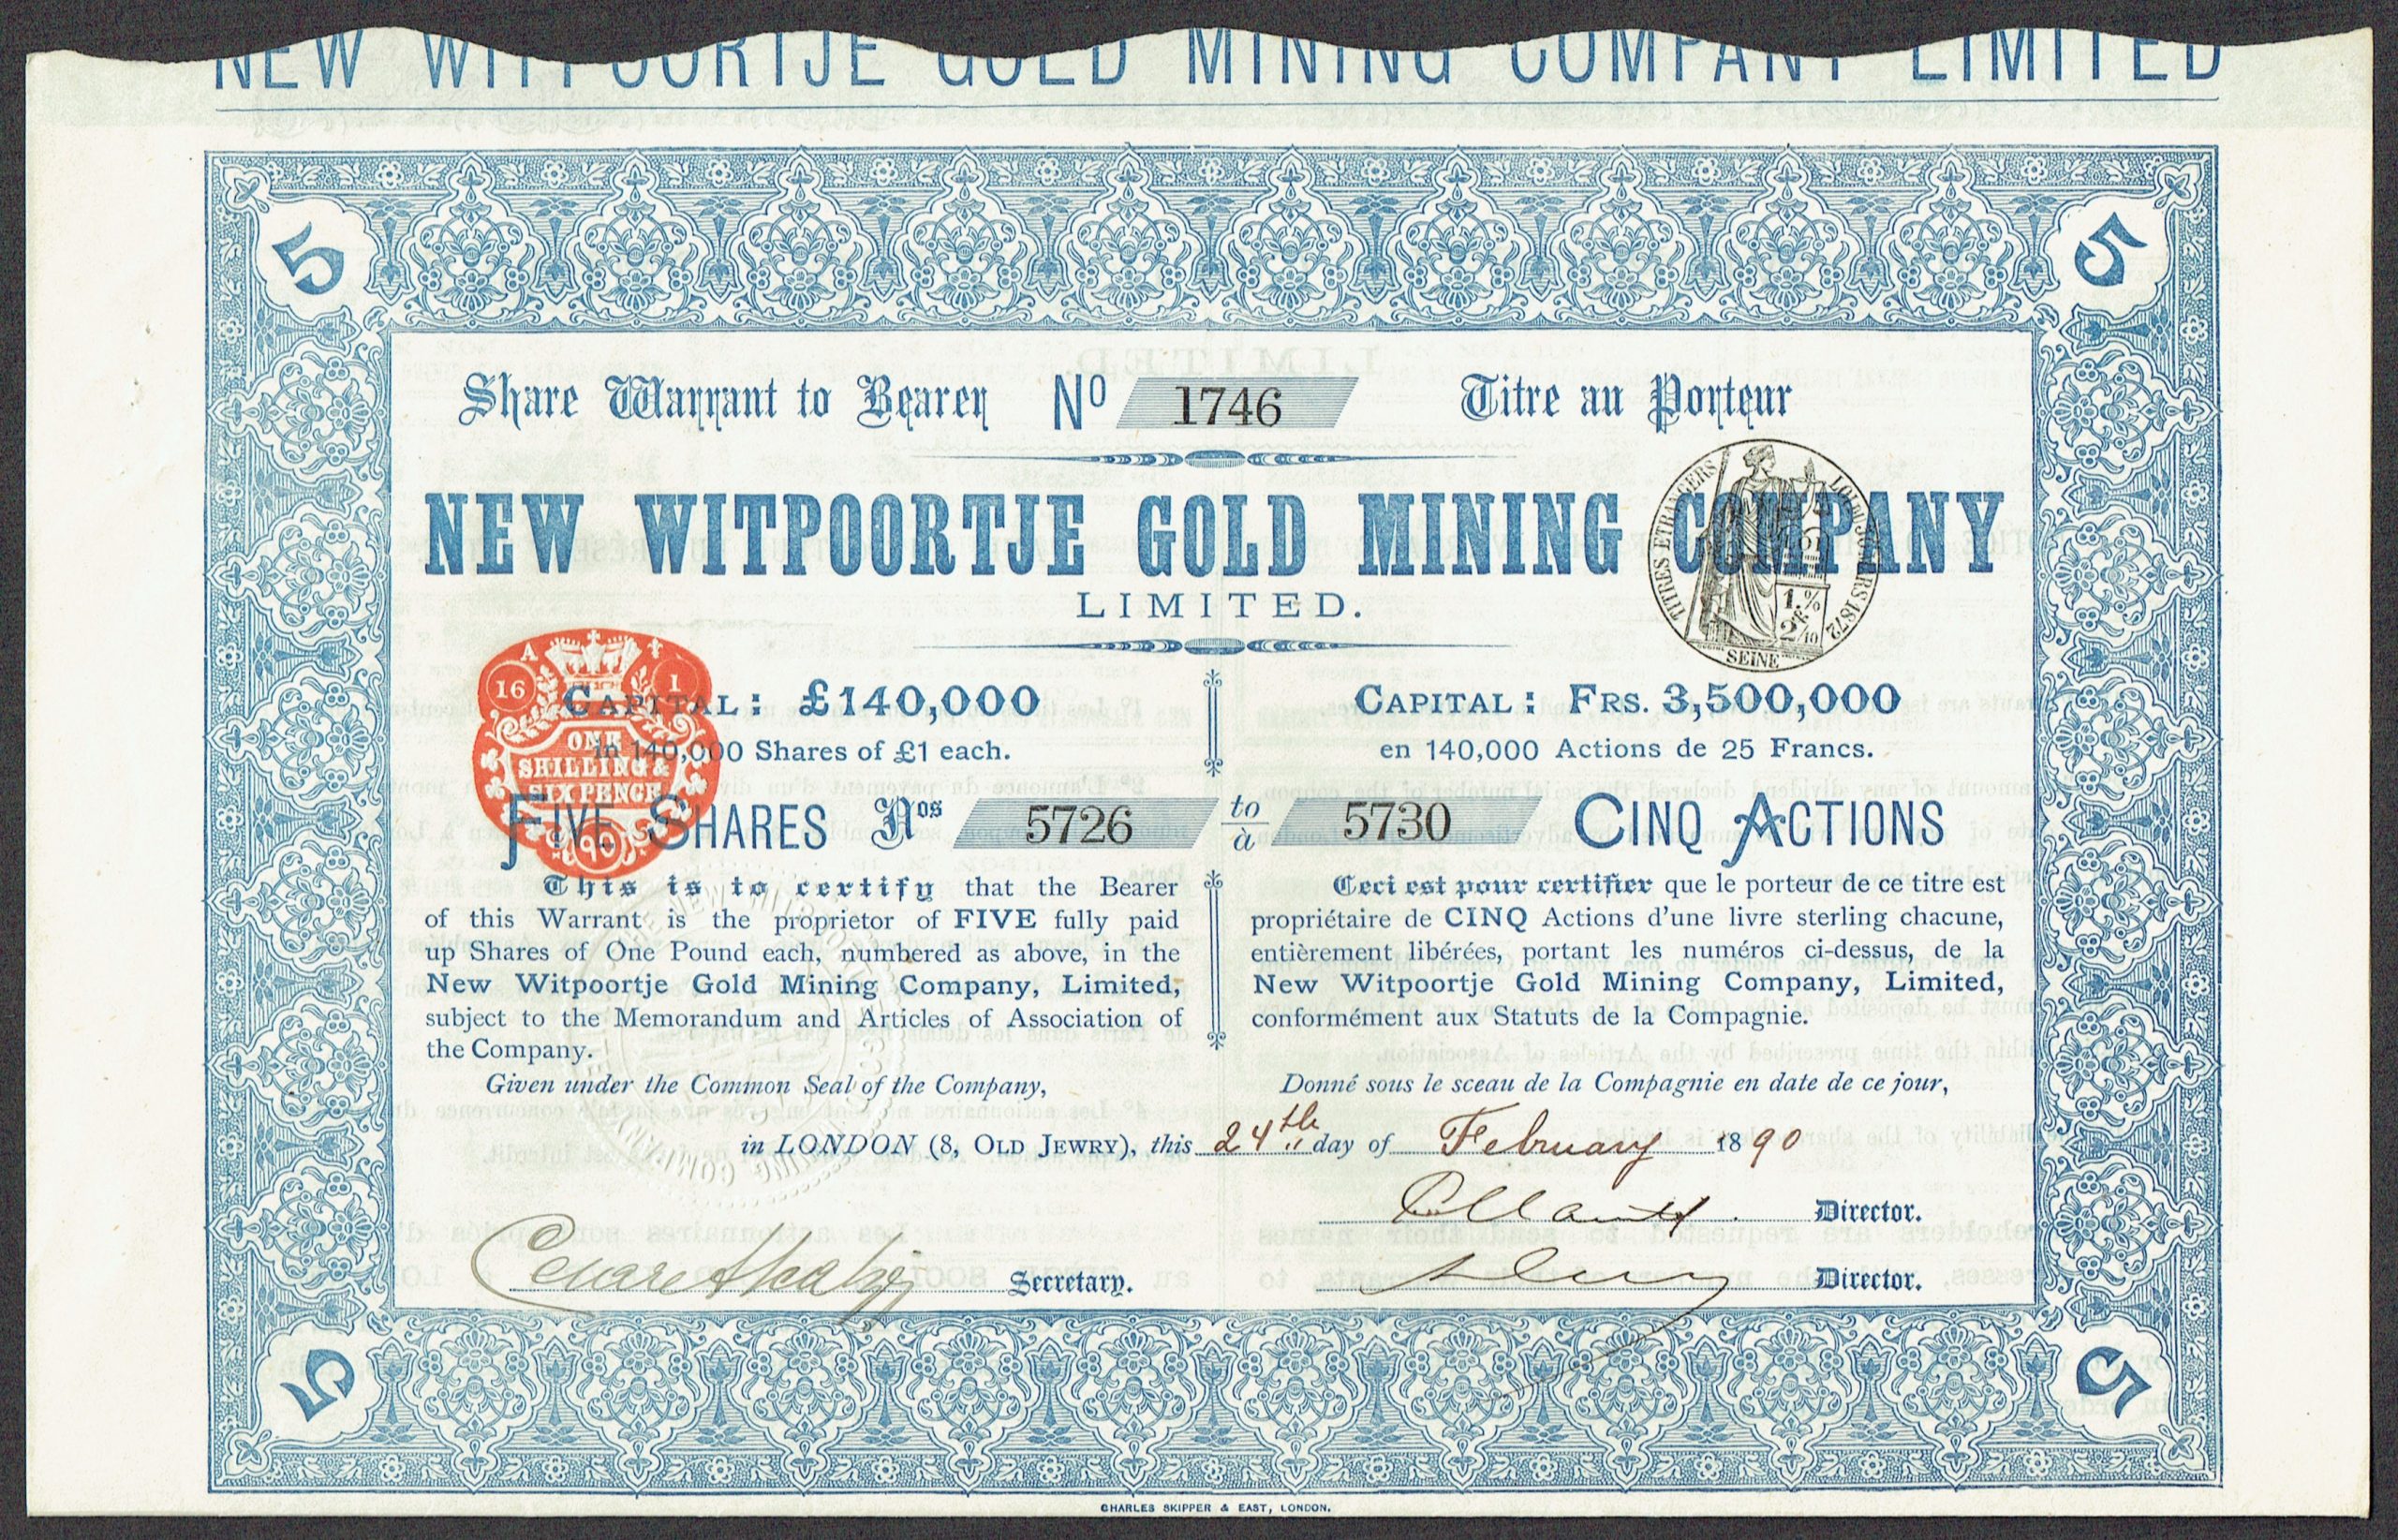 NEW WITPOORTJE GOLD MINING COMPANY LIMITED
5 5
Share Warrant to Bearer Nº 1746 Titre au Porteur
NEW WITPOORTJE GOLD MINING COMPANY
LIMITED.
TITRES ETRANGERS
SEINE
1.%
2/10
A
16 1
ONE
SHILLING &
SIX PENCE
90
CAPITAL: £140,000
in 140,000 Shares of £1 each.
CAPITAL: FRS. 3,500,000
en 140,000 Actions de 25 Francs.
FIVE SHARES Nos 5726 to/à 5730 CINQ ACTIONS
This is to certify that the Bearer
of this Warrant is the proprietor of FIVE fully paid
up Shares of One Pound each, numbered as above, in the
New Witpoortje Gold Mining Company, Limited,
subject to the Memorandum and Articles of Association of
the Company.
Given under the Common Seal of the Company,
Ceci est pour certifier que le porteur de ce titre est
propriétaire de CINQ Actions d'une livre sterling chacune,
entièrement libérées, portant les numéros ci-dessus, de la
New Witpoortje Gold Mining Company, Limited,
conformément aux Statuts de la Compagnie.
Donné sous le sceau de la Compagnie en date de ce jour,
in LONDON (8, OLD JEWRY), this 24th day of February 1890
Director.
Secretary.
Director.
5 5
CHARLES SKIPPER & EAST, LONDON.